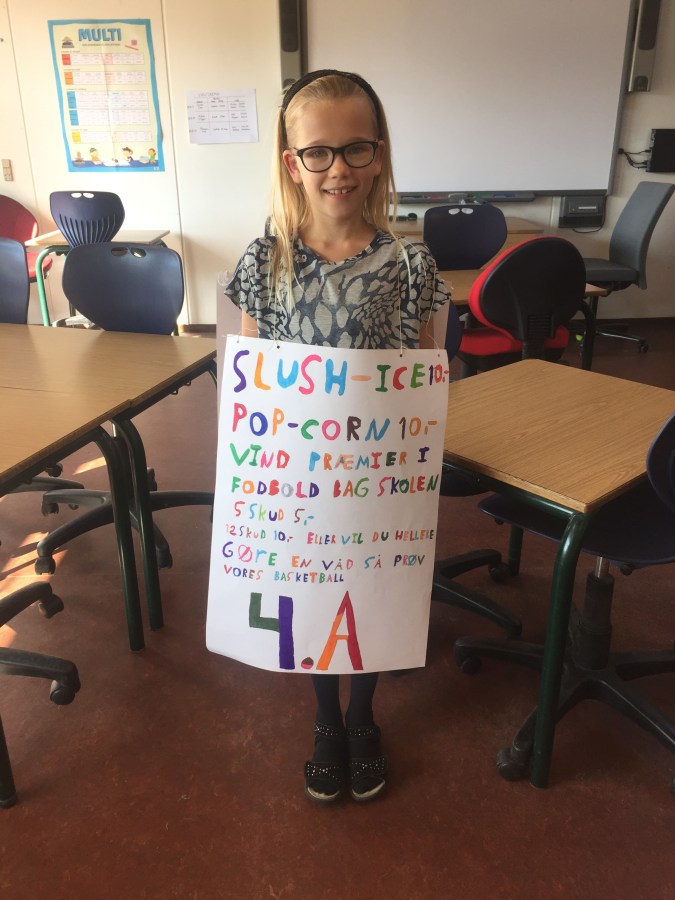 MULTI
SLUSH-ICE 10.-
POP-CORN 10.-
VIND PRÆMIER I
FODBOLD BAG SKOLEN
5 SKUD 5,-
12 SKUD 10.- ELLER VIL DU HELLERE
GØRE EN VÅD SÅ PRØV
VORES BASKETBALL
4.A